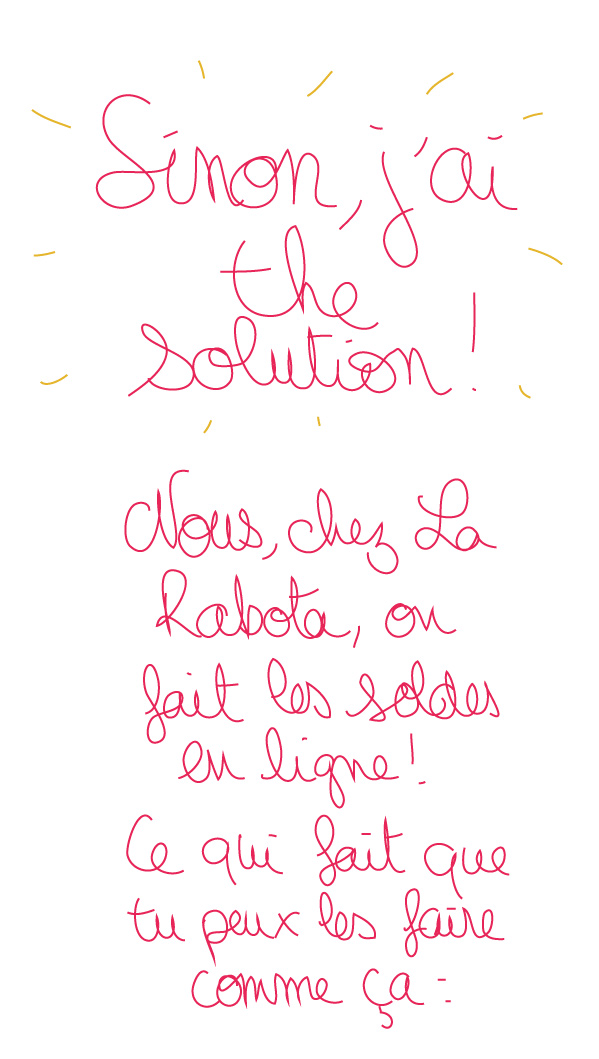 Sinon, j'ai
the
solution!
Nous, chez La
Rabota, on
fait les soldes
en ligne!
Ce qui fait que
tu peux les faire
comme ça :